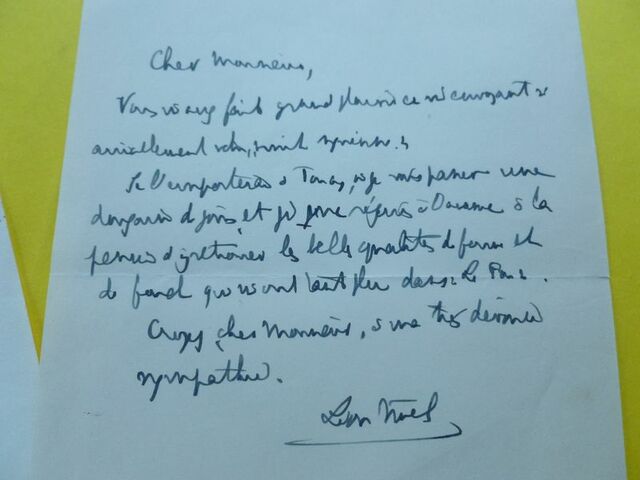 Cher Monsieur,
Vous m'avez fait grand plaisir en m'envoyant si
amicalement votre
Je l'emporterai à où je vais passer une
dizaine de jours, et je me réjouis à l'avance à la
pensée d'y retrouver les belles qualités de forme et
de fond qui m'ont tant plu dans « Le
Croyez, cher Monsieur, à ma très dévouée
sympathie.
Léon Noël